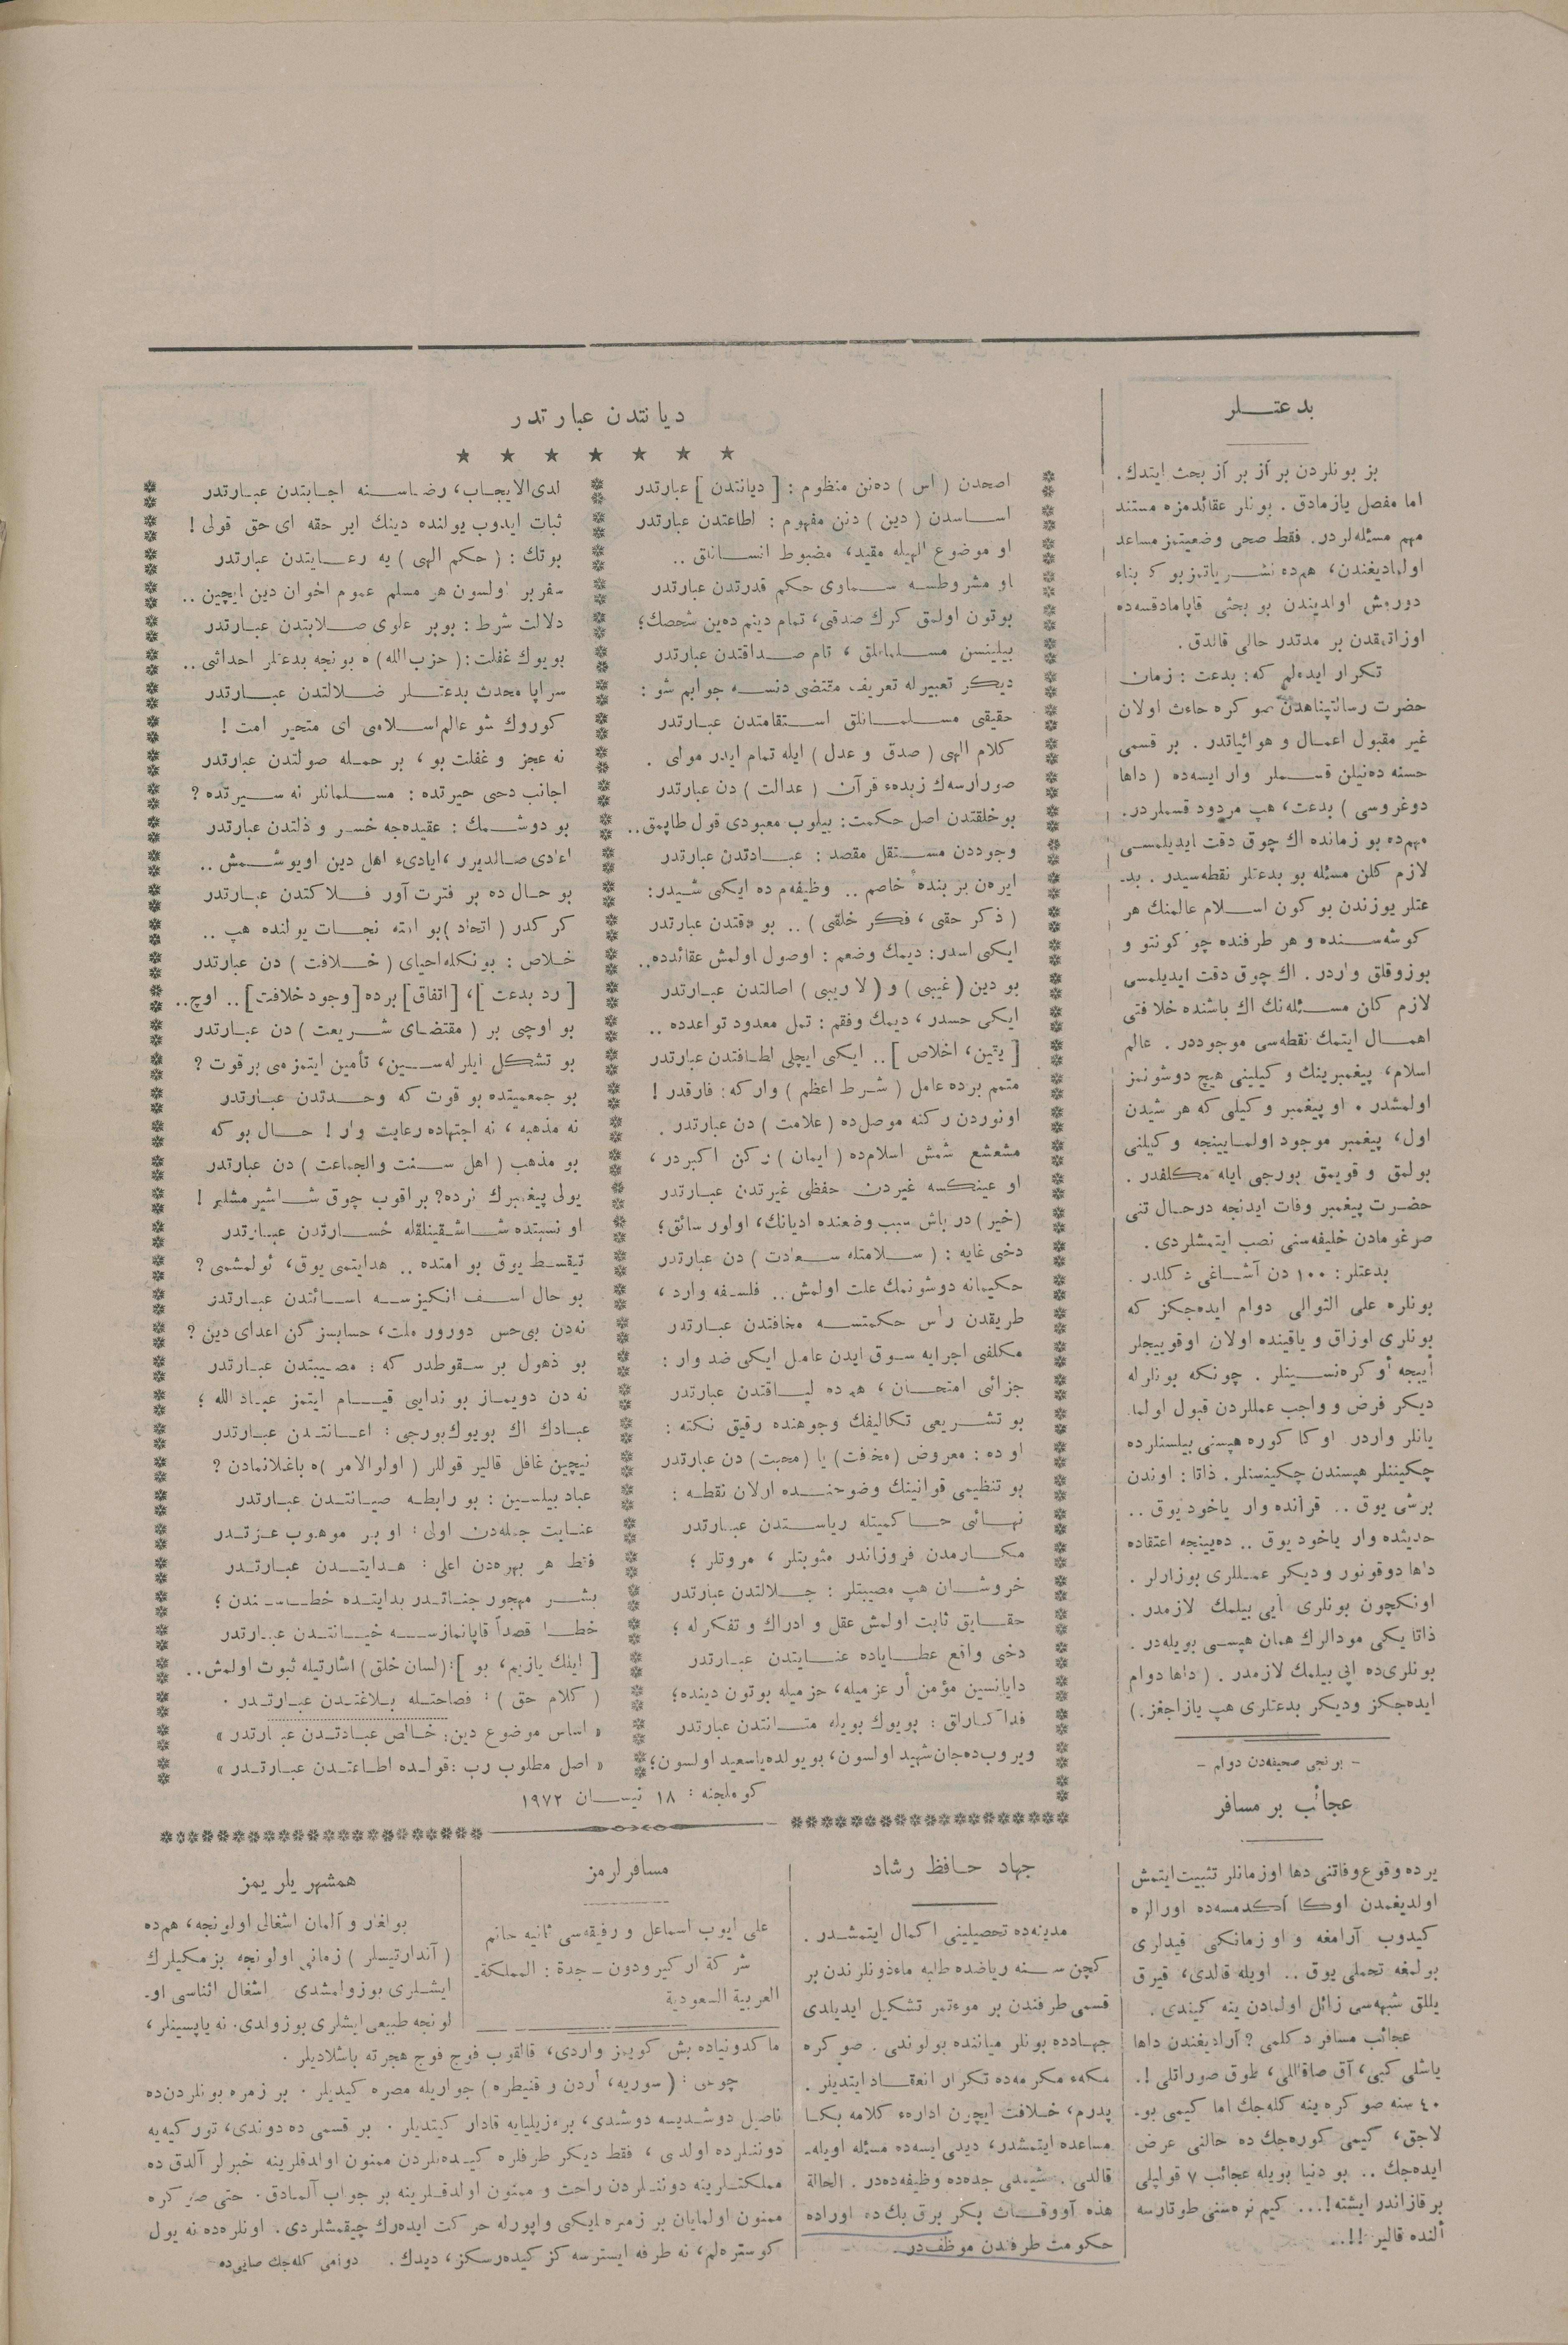 بدعتــلر
بز بونلردن بر آز بر آز بحث ایتدك.
اما مفصل یازمادق . بونلر عقائدمزه مستند
مهم مسئله‌لردر. فقط صحی وضعیتمز مساعد
اولمادیغندن، هم‌ده نشریاتمز بوكا بناء
دورمش اولدیندن بو بحثی قاپامادقسه‌ده
اوزاتمقدن بر مدتدر خالی قالدق .
تكرار ایده‌لم كه : بدعت : زمان
حضرت رسالتپناهدن صوكره حادث اولان
غیر مقبول اعمال و هوائیاتدر . بر قسمی
حسنه ده‌نیلن قسملر وار ایسه‌ده ( داها
دوغروسی ) بدعت، هپ مردود قسملردر.
مهم‌ده بو زمانده اك چوق دقت ایدیلمسی
لازم كلن مسئله بو بدعتلر نقطه‌سیدر . بد-
عتلر یوزندن بو كون اسلام عالمنك هر
كوشه‌سنده و هر طرفنده چوكونتو و
بوزوقلق واردر. اك چوق دقت ایدیلمسی
لازم كلن مسئله‌نك اك باشنده خلافتی
اهمال ایتمك نقطه‌سی موجوددر . عالم
اسلام، پیغمبرینك وكیلینی هیچ دوشونمز
اولمشدر . او پیغمبر وكیلی كه هر شیدن
اول، پیغمبر موجود اولمایینجه وكیلنی
بولمق و قویمق بورجی ایله مكلفدر .
حضرت پیغمبر وفات ایدنجه درحال تنی
صوغومادن خلیفه‌سنی نصب ایتمشلردی .
بدعتلر: ۱۰۰ دن آشاغی دكلدر .
بونلره علی التوالی دوام ایده‌جكز كه
بونلری اوزاق و یاقینده اولان اوقوییجیلر
اییجه اوكره‌نسینلر . چونكه بونلرله
دیكر فرض و واجب عمللردن قبول اولما-
یانلر واردر. اوكا كوره هپسنی بیلسنلرده
چكیننلر هپسندن چكینسنلر. ذاتا : اوندن
برشی یوق .. قرآنده وار یاخود یوق ..
حدیثده وار یاخود یوق .. ده‌یینجه اعتقاده
داها دوقونور و دیكر عمللری بوزارلر .
اونكچون بونلری ایی بیلمك لازمدر .
ذاتا یكی مودالرك همان هپسی بویله‌در .
بونلری‌ده ایی بیلمك لازمدر . ( داها دوام
ایده‌جكز ودیكر بدعتلری هپ یازاجغز. )
ــ بونجی صحیفه‌دن دوام ــ
عجائب بر مسافر
یرده وقوع وفاتنی دها اوزمانلر تثبیت ایتمش
اولدیغمدن اوكا آكدمسه‌ده اورالره
كیدوب آرامغه و او زمانكی قیدلری
بولمغه تحملی یوق .. اویله قالدی، قیرق
ییللق شبهه‌سی زائل اولمادن ینه كیتدی .
عجائب مسافر دكلمی ? آرادیغندن داها
یاشلی كبی، آق صاقاللی، طوق صوراتلی !.
۴۰ سنه صوكره ینه كله‌جك اما كیمی بو-
لاجق، كیمی كوره‌جك ده حالنی عرض
ایده‌جك .. بو دنیا بویله عجائب ۷ قولپلی
بر قازاندر ایشته!... كیم نره‌سنی طوتارسه
ألنده قالیر !!..
دیانتدن عبارتدر
★ ★ ★ ★ ★ ★ ★
اصحدن ( اس ) ده‌نن منظوم : [ دیانتدن ] عبارتدر
اساسدن ( دین ) دنن مفهوم : اطاعتدن عبارتدر
او موضوع الهیله مقید، مضبوط انسانلق ..
او مشروطسه سماوی حكم قدرتدن عبارتدر
بوتون اولمق كرك صدقی، تمام دینم ده‌ین شخصك؛
بیلینسن مسلمانلق ، تام صداقتدن عبارتدر
دیكر تعبیرله تعریف مقتضی دنسه جوابم شو :
حقیقی مسلمانلق استقامتدن عبارتدر
كلام الهی ( صدق و عدل ) ایله تمام ایدر مولی .
صورارسه‌ك زبدهء قرآن ( عدالت ) دن عبارتدر
بوخلقتدن اصل حكمت : بیلوب معبودی قول طاپمق..
وجوددن مستقل مقصد : عبادتدن عبارتدر
ایره‌ن بر بنده‌ء خاصم .. وظیفه‌م ده ایكی شیدر:
( ذكر حقی ، فكر خلقی ) .. بو دقتدن عبارتدر
ایكی اسدر: دیمك وضعم : اوصول اولمش عقائدده..
بو دین ( غیبی ) و ( لا ریبی ) اصالتدن عبارتدر
ایكی حسدر ، دیمك وقفم : تمل معدود تواعدده ..
[ یقین، اخلاص ] .. ایكی ایچلی لطافتدن عبارتدر
متمم برده عامل ( شرط اعظم ) واركه : فارقدر !
اونوردن ركنه موصل‌ده ( علامت ) دن عبارتدر .
مشعشع شمش اسلام‌ده ( ایمان ) ركن اكبردر ،
او عینكسه غیردن حفظی غیرتدن عبارتدر
(خیر ) در باش سبب وضعنده ادیانك، اولور سائق؛
دخی غایه : ( سلامتله سعادت ) دن عبارتدر
حكیمانه دوشونمك علت اولمش .. فلسفه وارد ،
طریقدن رأس حكمتسه مخافتدن عبارتدر
مكلفی اجرایه سوق ایدن عامل ایكی ضد وار :
جزائی امتحان ، هم ده لیاقتدن عبارتدر
بو تشریعی تكالیفك وجوهنده رقیق نكته :
او ده : معروض (مخافت) یا (محبت) دن عبارتدر
بو تنظیمی قوانینك وضوحنده اولان نقطه :
نهائی حاكمیتله ریاستدن عبارتدر
مكارمدن فروزاندر مثوبتلر ، مروتلر ؛
خروشان هپ مصیبتلر : جلالتدن عبارتدر
حقایق ثابت اولمش عقل و ادراك و تفكرله ؛
دخی واقع عطایاده عنایتدن عبارتدر
دایانسین مؤمن أر عزمیله، حزمیله بوتون دینده؛
فداكارلق : بویوك بویله متانتدن عبارتدر
ویروب‌ده جان شهید اولسون، بویولده یاسعید اولسون؛
لدی الایجاب، رضاسنه اجابتدن عبارتدر
ثبات ایدوب یولنده دینك ایر حقه ای حق قولی !
بوتك : ( حكم الهی ) یه رعایتدن عبارتدر
سفربر اولسون هر مسلم عموم اخوان دین ایچین ..
دلالت شرط : بوبر علوی صلابتدن عبارتدر
بویوك غفلت : ( حزب الله ) ه بونجه بدعتلر احداثی ..
سراپا محدث بدعتلر ضلالتدن عبارتدر
كوروك شو عالم اسلامی ای متحیر امت !
نه عجز و غفلت بو ، بر حمله صولتدن عبارتدر
اجانب دخی حیرتده : مسلمانلر نه سیرتده ?
بو دوشمك : عقیده‌جه خسر و ذلتدن عبارتدر
اعادی صالدیرر ،ایادیء اهل دین اویوشمش ..
بو حال ده بر فترت آور فلاكتدن عبارتدر
كركدر ( اتحاد )بو امته نجات یولنده هپ ..
خلاص : بونكله احیای ( خلافت ) دن عبارتدر
[ رد بدعت ]، [اتفاق] برده [وجود خلافت] .. اوچ..
بو اوچی بر ( مقتضای شریعت ) دن عبارتدر
بو تشكل ایلرله‌سین، تأمین ایتمزمی بر قوت ?
بو جمعیتده بو قوت كه وحدتدن عبارتدر
نه مذهبه ، نه اجتهاده رعایت وار ! حال بو كه
بو مذهب ( اهل سنت والجماعت ) دن عبارتدر
یولی پیغمبرك نرده? براقوب چوق شاشیرمشلر !
او نسبتده شاشقینلقله خسارتدن عبارتدر
تیقسط یوق بو امتده .. هدایتمی یوق، ئولمشمی ?
بو حال اسف انكیزسه اسائتدن عبارتدر
نه‌دن بی‌حس دورور ملت، حسابسز كن اعدای دین ?
بو ذهول بر سقوطدر كه : مصیبتدن عبارتدر
نه دن دویماز بو ندایی قیام ایتمز عباد الله ؛
عبادك اك بویوك بورجی : اعانتدن عبارتدر
نیچین غافل قالیر قوللر ( اولو الامر )ه باغلانمادن ?
عباد بیلسین : بو رابطه صیانتدن عبارتدر
عنایت جمله‌دن اولی : او بر موهوب عزتدر
فقط هر بهره‌دن اعلی : هدایتدن عبارتدر
بشر مهجور جناتدر بدایتده خطاسندن ؛
خطا قصداً قاپانمازسه خیانتدن عبارتدر
[ ایلك یازیم، بو ]: (لسان خلق) اشارتیله ثبوت اولمش..
( كلام حق ) : فصاحتله بلاغتدن عبارتدر .
« اساس موضوع دین: خالص عبادتدن عبارتدر »
« اصل مطلوب رب : قولده اطاعتدن عبارتدر »
كوملجنه : ۱۸ نیسان ۱۹۷۲
جهاد حافظ رشاد
مدینه‌ده تحصیلینی اكمال ایتمشدر .
كچن سنه ریاضده طلبه ماءذونلرندن بر
قسمی طرفندن بر موءتمر تشكیل ایدیلدی
جهادده بونلر میاننده بولوندی . صوكره
مكهء مكرمه‌ده تكرار انعقاد ایتدیلر .
پدرم، خلافت ایچون ادارهء كلامه بكا
مساعده ایتمشدر، دیدی‌ایسه‌ده مسئله اویله-
قالدی . شیمدی جده‌ده وظیفه‌ده‌در . الحالة
هذه آووقات بكر برق بك ده اوراده
حكومت طرفندن موظف‌در.
مسافرلرمز
علی ایوب اسماعل و رفیقه‌سی ثانیه خانم
شركة اركیرودون ــ جدة : المملكة-
العربیة السعودیة
همشهریلریمز
بولغار و آلمان اشغالی اولونجه، هم‌ده
( آندارتیسلر ) زمانی اولونجه بزمكیلرك
ایشلری بوزولمشدی اشغال اثناسی او-
لونجه طبیعی ایشلری بوزولدی. نه یاپسینلر ،
ماكدونیاده بش كویمز واردی، قالقوب فوج فوج هجرته باشلادیلر .
چوغی : ( سوریه، أردن و قنیطره ) جواریله مصره كیدیلر . بر زمره بونلردن‌ده
ناصیل دوشدیسه دوشدی، بره‌زیلیایه قادار كیتدیلر . بر قسمی ده دوندی، توركیه‌یه
دوننلرده اولدی ، فقط دیكر طرفلره كیده‌نلردن ممنون اولدقلرینه خبرلر آلدق ده
مملكتلرینه دوننلردن راحت و ممنون اولدقلرینه بر جواب آلمادق. حتی صوكره
ممنون اولمایان بر زمره ایكی واپورله حركت ایده‌رك چیقمشلردی. اونلره‌ده نه یول
كوستره‌لم، نه طرفه ایسترسه كز كیده‌رسكز ، دیدك . دوامی كله‌جك صایی‌ده